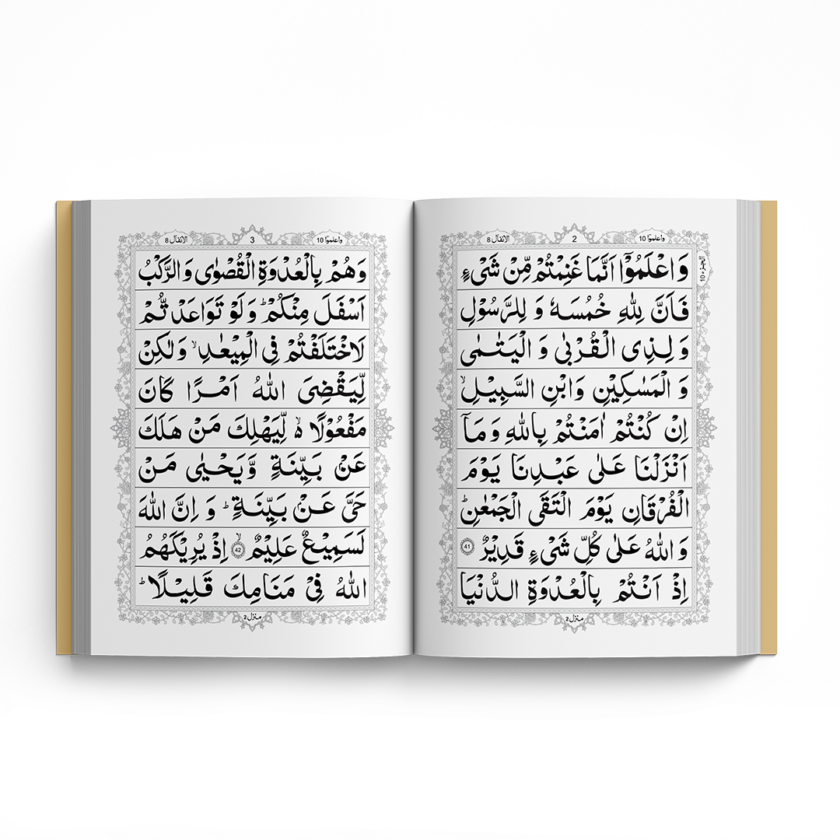 الانفال 8
2
واعلموا 10
الجزء 10
وَ اعْلَمُوْۤا اَنَّمَا غَنِمْتُمْ مِّنْ شَیْءٍ
فَاَنَّ لِلّٰهِ خُمُسَهٗ وَ لِلرَّسُوْلِ
وَ لِذِی الْقُرْبٰی وَ الْیَتٰمٰی
وَ الْمَسٰكِیْنِ وَابْنِ السَّبِیْلِ ۙ
اِنْ كُنْتُمْ اٰمَنْتُمْ بِاللّٰهِ وَ مَاۤ
اَنْزَلْنَا عَلٰی عَبْدِنَا یَوْمَ
الْفُرْقَانِ یَوْمَ الْتَقَی الْجَمْعٰنِ ؕ
وَ اللّٰهُ عَلٰی كُلِّ شَیْءٍ قَدِیْرٌ 41
اِذْ اَنْتُمْ بِالْعُدْوَةِ الدُّنْیَا
منزل 2
الانفال 8
3
واعلموا 10
وَهُمْ بِالْعُدْوَةِ الْقُصْوٰی وَ الرَّكْبُ
اَسْفَلَ مِنْكُمْ ؕ وَ لَوْ تَوَاعَدْتُّمْ
لَاخْتَلَفْتُمْ فِی الْمِیْعٰدِ ۙ وَ لٰكِنْ
لِّیَقْضِیَ اللّٰهُ اَمْرًا كَانَ
مَفْعُوْلًا ۙ۬ لِّیَهْلِكَ مَنْ هَلَكَ
عَنْۢ بَیِّنَةٍ وَّیَحْیٰی مَنْ
حَیَّ عَنْۢ بَیِّنَةٍ ؕ وَ اِنَّ اللّٰهَ
لَسَمِیْعٌ عَلِیْمٌ ۙ 42 اِذْ یُرِیْكَهُمُ
اللّٰهُ فِیْ مَنَامِكَ قَلِیْلًا ؕ
منزل 2